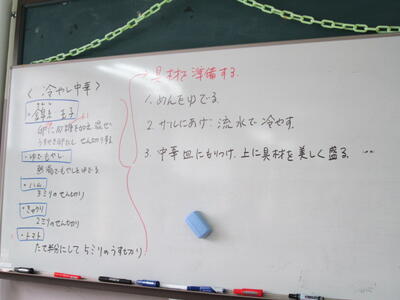 〈 冷やし中華 〉
・錦糸玉子
卵に砂糖を加え混ぜ
うすやき卵にし せん切りする
・ゆでもやし
熱湯でもやしをゆでる
・ハム
3ミリのせん切り
・きゅうり
2ミリのせん切り
・トマト
たて半分にして 5ミリのうす切り
具材を準備する。
1. めんをゆでる。
2. ザルにあけ、流水で冷やす。
3. 中華皿にもりつけ、上に具材を美しく盛る。…